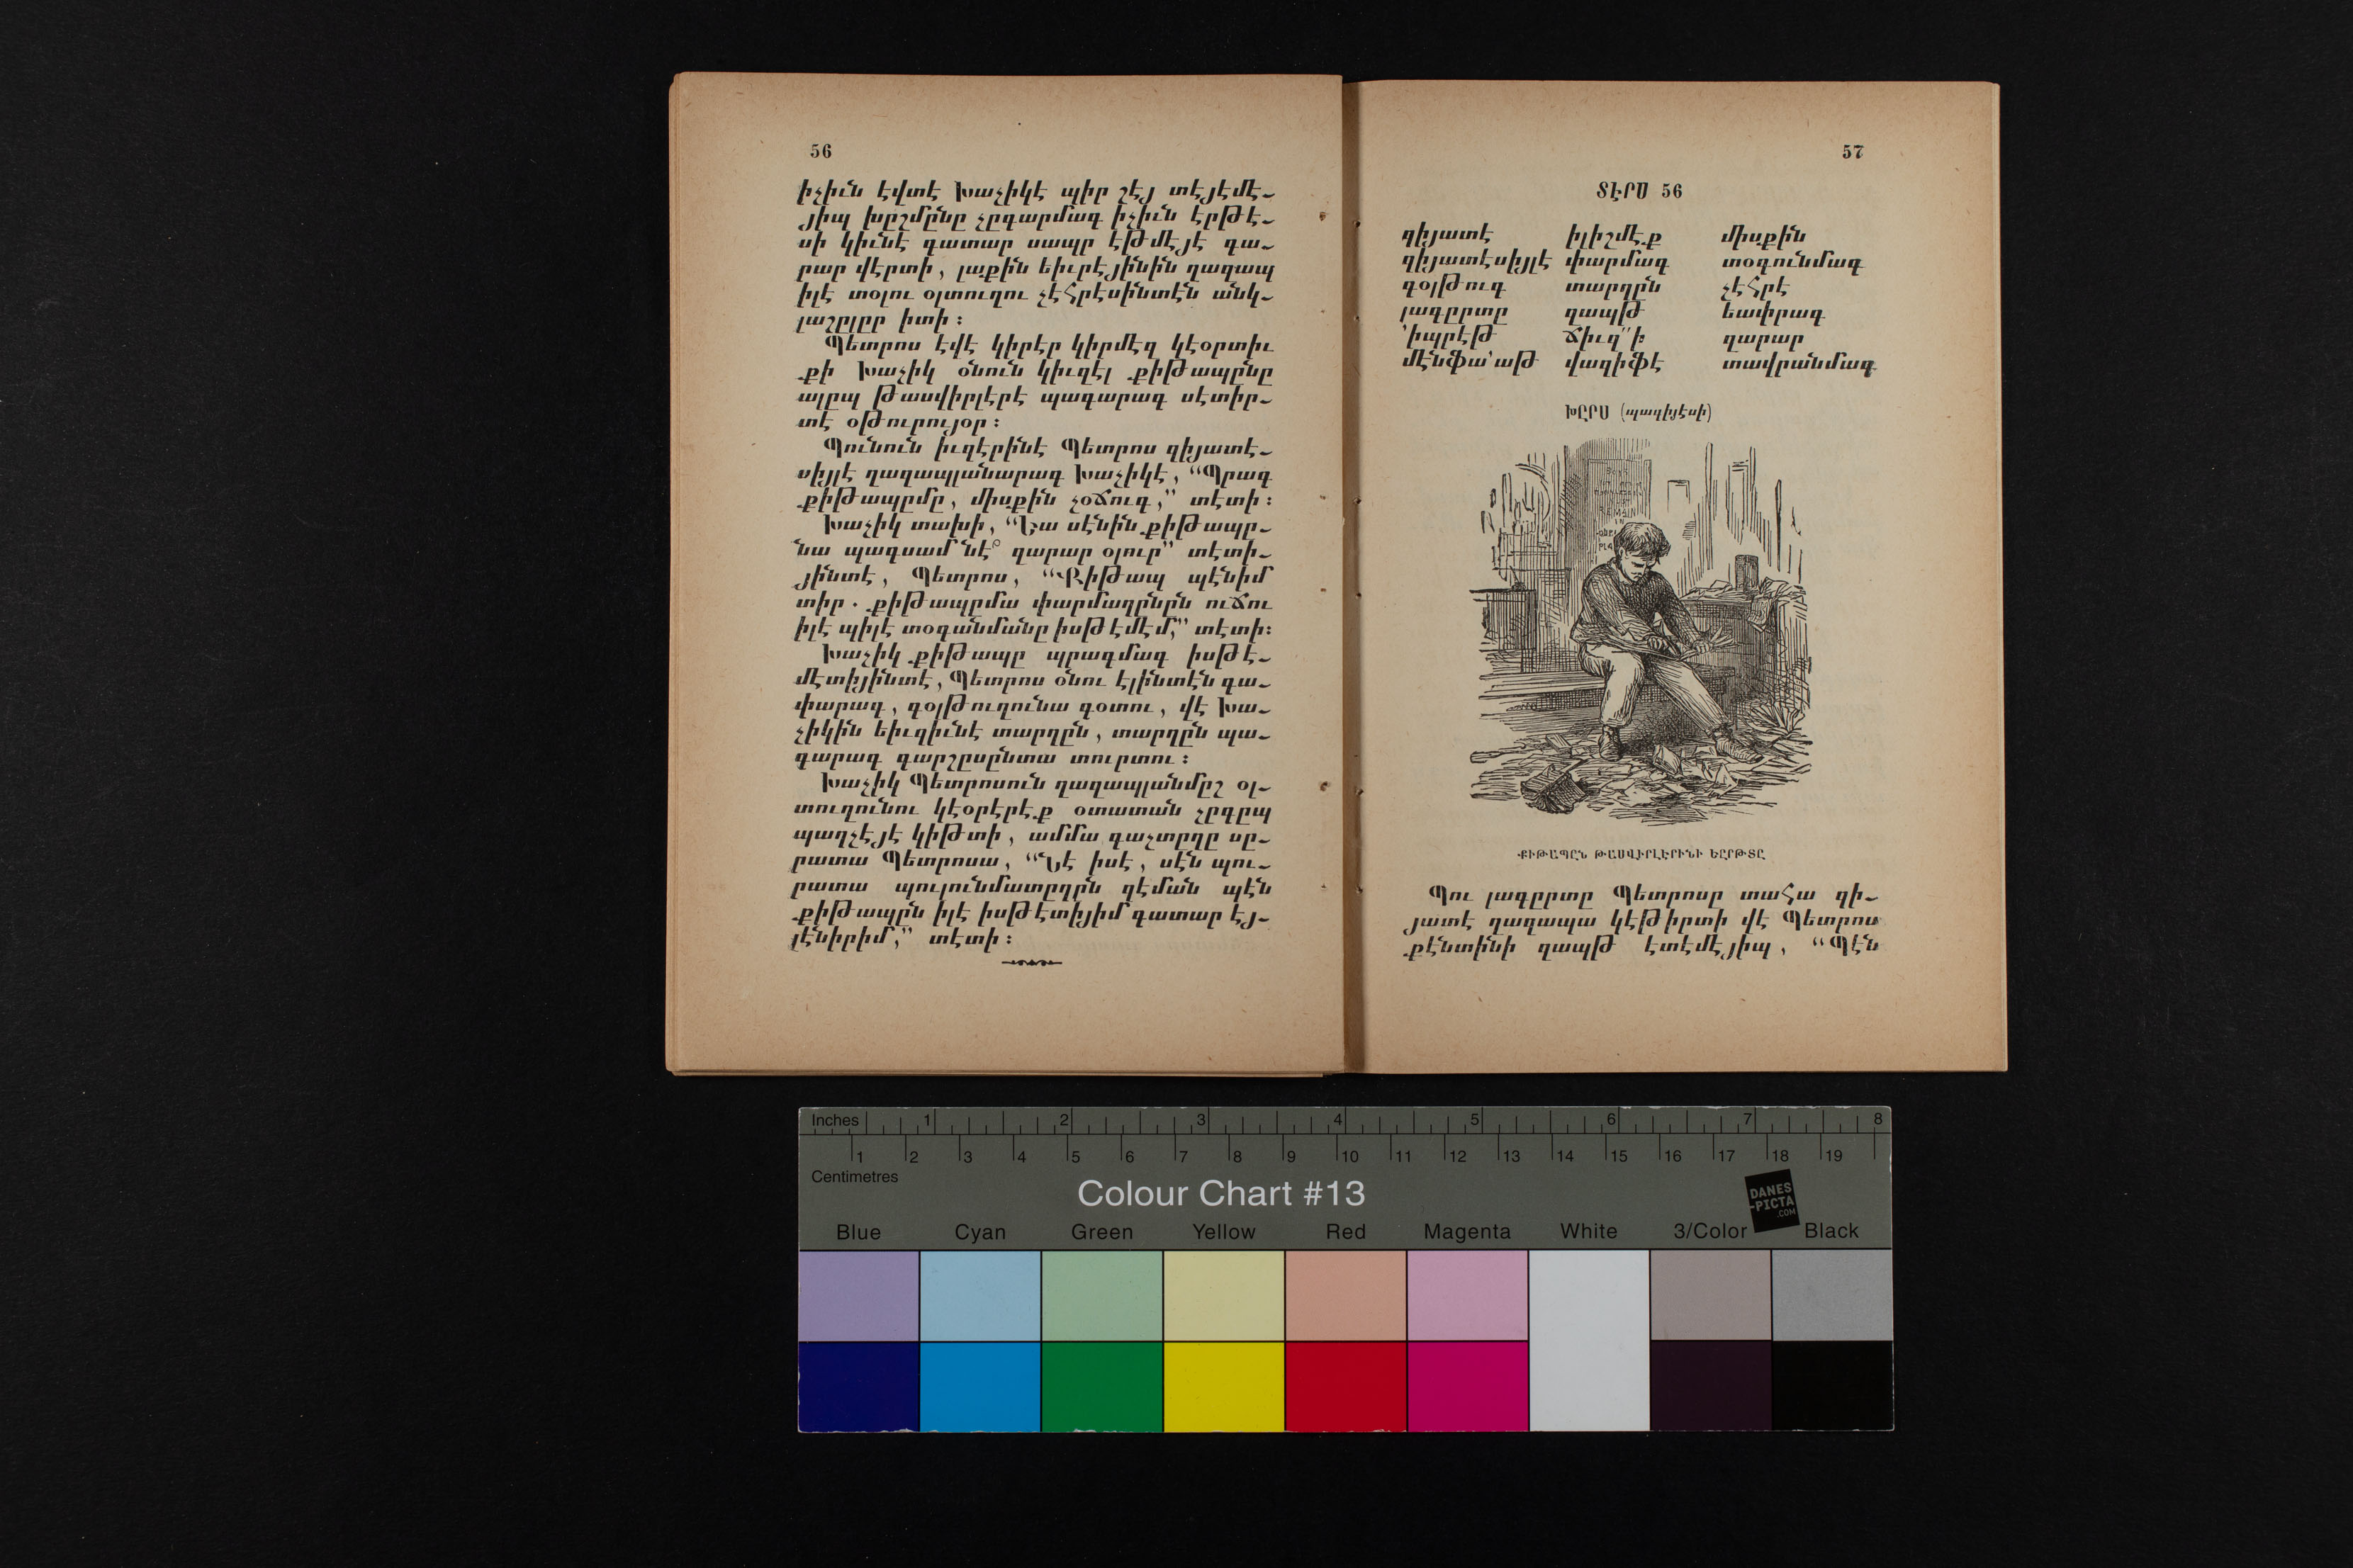 56
իչիւն էվտէ Խաչիկէ պիր շէյ տէյէմէ֊
յիպ խըշմընը չըգարմագ իչիւն էրթէ֊
սի կիւնէ գատար սապր էթմէյէ գա֊
րար վէրտի, լաքին եիւրէյինին ղաղապ
իլէ տօլու օլտուղու չէհրէսինտէն անկ֊
լաշըլըր իտի։
Պետրոս էվէ կիրէր կիրմէզ կէօրտիւ
քի Խաչիկ օնուն կիւզէլ քիթապընը
ալըպ թասվիրլէրէ պագարագ սէտիր֊
տէ օթուրույօր։
Պունուն իւզէրինէ Պետրոս զիյատէ֊
սիյլէ ղաղապլանարագ Խաչիկէ, “Պրագ
քիթապըմը, միսքին չօճուգ,” տէտի։
Խաչիկ տախի, “Եա սէնին քիթապը֊
նա պագսամ նէ՞ զարար օլուր” տէտի֊
յինտէ, Պետրոս, “Քիթապ պէնիմ
տիր. քիթապըմա փարմաղընըն ուճու
իլէ պիլէ տօգանմանը իսթէմէմ,” տէտի։
Խաչիկ քիթապը պրագմագ իսթէ֊
մէտիյինտէ, Պետրոս օնու էլինտէն գա֊
փարագ, գօլթուղունա գօտու, վէ Խա֊
չիկին եիւզիւնէ տարղըն, տարղըն պա֊
գարագ գարշըսընտա տուրտու։
Խաչիկ Պետրոսուն ղաղապլանմըշ օլ֊
տուղունու կէօրէրէք օտատան չըգըպ
պաղչէյէ կիթտի, ամմա գաչտըղը սը֊
րատա Պետրոսա, “Նէ իսէ, սէն պու֊
րատա պուլունմատըղըն զէման պէն
քիթապըն իլէ իսթէտիյիմ գատար էյ֊
լէնիրիմ,” տէտի։
57
ՏԷՐՍ 56
զիյատէ իլիշմէք միսքին
զիյատէսիյլէ փարմագ տօգունմագ
գօլթուգ տարղըն չէհրէ
լագըրտը զապթ եափրագ
՚իպրէթ ճիւզ՛՛ի զարար
մէնֆա՚աթ վազիֆէ տավրանմագ
ԽԸՐՍ (պագիյէսի)
ՔԻԹԱՊԸՆ ԹԱՍՎԻՐԼԷՐԻՆԻ ԵԸՐԹՏԸ
Պու լագըրտը Պետրոսը տահա զի֊
յատէ ղաղապա կէթիրտի վէ Պետրոս
քէնտինի զապթ էտէմէյիպ, “Պէն
Inches 1 2 3 4 5 6 7 8
1 2 3 4 5 6 7 8 9 10 11 12 13 14 15 16 17 18 19
Centimetres
Colour Chart #13
DANES
-PICTA
.COM
Blue Cyan Green Yellow Red Magenta White 3/Color Black